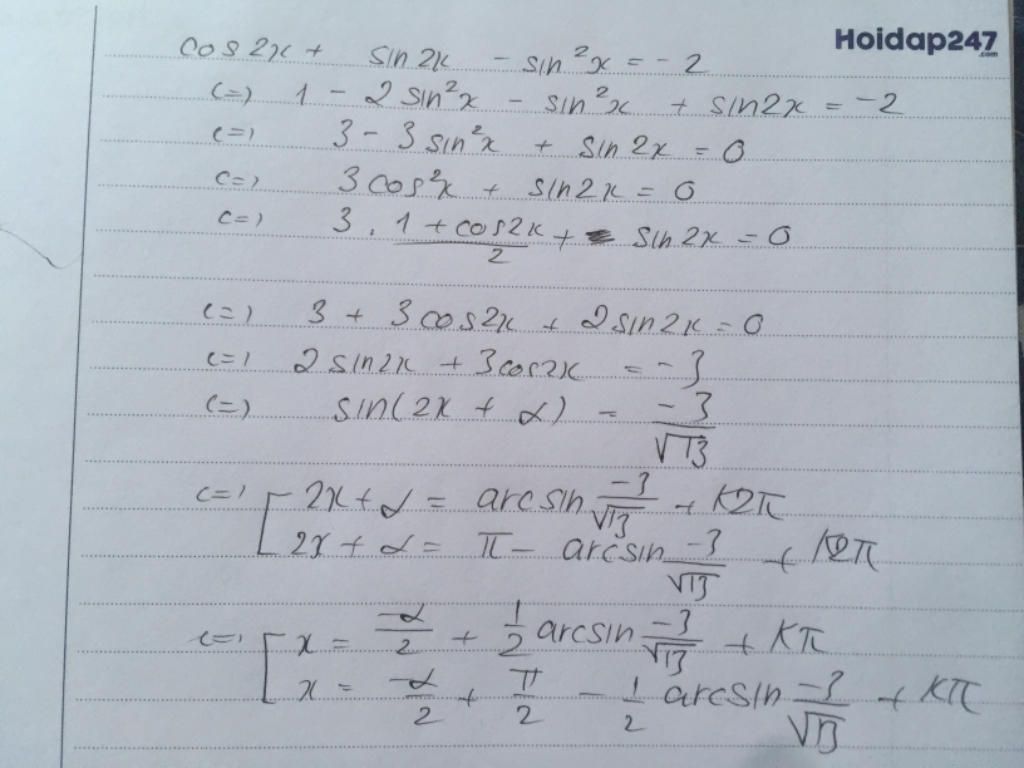 Hoidap247.com
cos2x + sin2x - sin²x = -2
<=> 1 - 2sin²x - sin²x + sin2x = -2
<=> 3 - 3sin²x + sin2x = 0
<=> 3cos²x + sin2x = 0
<=> 3 . (1 + cos2x)/2 + sin2x = 0
<=> 3 + 3cos2x + 2sin2x = 0
<=> 2sin2x + 3cos2x = -3
<=> sin(2x + α) = -3/√13
<=> [ 2x + α = arcsin -3/√13 + K2π
2x + α = π - arcsin -3/√13 + K2π
<=> [ x = -α/2 + 1/2 arcsin -3/√13 + Kπ
x = -α/2 + π/2 - 1/2 arcsin -3/√13 + Kπ